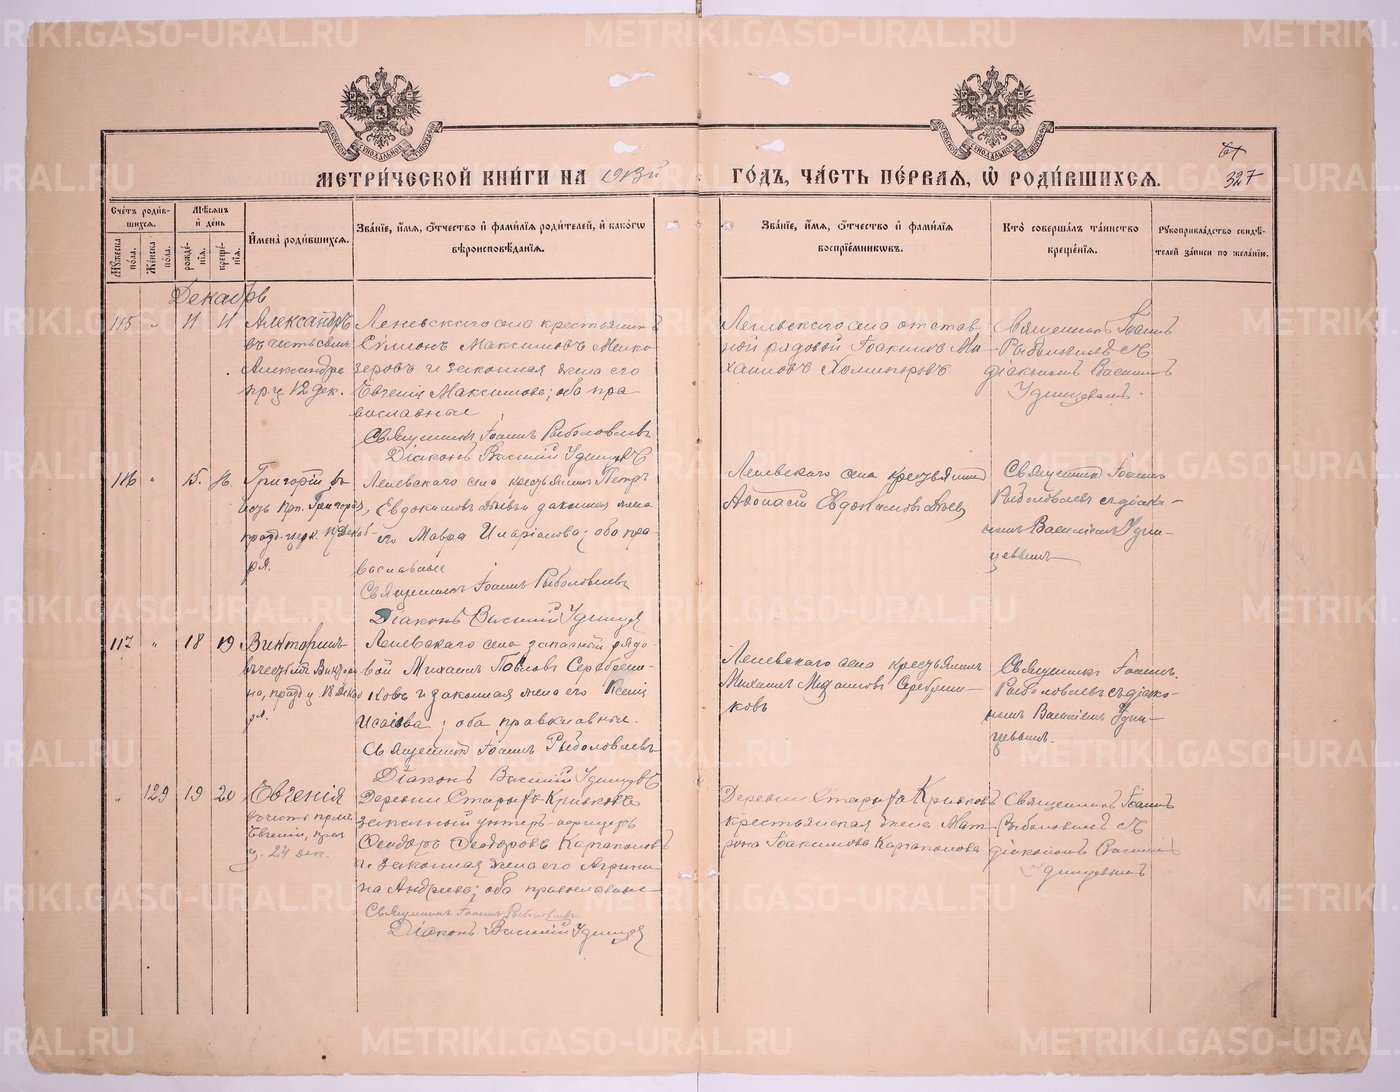 МЕТРИ́ЧЕСКОЙ КНИ́ГИ НА 1913й ГО́ДЪ, ЧА́СТЬ ПЕ́РВАЯ, Ѡ РОДИ́ВШИХСЯ.
327
Сче́тъ роди́в-
шихся.
Мꙋ́жеска
по́ла.
Же́нска
по́ла.
Мѣ́сяцъ
и҆ де́нь
рожде́-
нїя.
креще́-
нїя.
И҆мена̀ роди́вшихся.
Зва́нїе, и҆́мя, ѻ҆́тчество и҆ фами́лїя роди́телей, и҆ како́гѡ
вѣроисповѣ́данїя.
Зва́нїе, и҆́мя, ѻ҆́тчество и҆ фами́лїя
воспрїе́мникѡвъ.
Кто̀ соверша́лъ та́инство
креще́нїя.
Рꙋкоприкла́дство свидѣ́-
телей за́писи по жела́нїю.
Декабрь
115 " 11 11
Александръ
въ честь свят.
Александра
пр. ц. 12 дек.
Леневскаго села крестьянинъ
Симіонъ Максимовъ Мелко-
зеровъ и законная жена его
Евгенія Максимова; оба пра-
вославные
Священникъ Іоаннъ Рыболовлевъ
Діаконъ Василій Удинцевъ
Леневскаго села отстав-
ной рядовой Іоакимъ Ми-
хаиловъ
Священникъ Іоаннъ
Рыболовлевъ съ
діакономъ Василіемъ
Удинцевымъ.
116 " 15. 16
Григорій въ
честь прп. Григорія,
празд. церк. 19 декаб-
ря.
Леневскаго села крестьянинъ Петръ
Евдокимовъ законная жена
его Мавра Иларіонова; оба пра-
вославные
Священникъ Іоаннъ Рыболовлевъ
Діаконъ Василій Удинцевъ
Леневскаго села крестьянинъ
Аѳонасій Евдокимовъ
Священникъ Іоаннъ
Рыболовлевъ съ діако-
номъ Василіемъ Удин-
цевымъ
117 " 18 19
Викторинъ
празд. ц 18 декаб
ря.
Леневскаго села запасный рядо-
вой Михаилъ Павловъ Серебрени-
ковъ и законная жена его Ксенія
Исаіева; оба православные.
Священникъ Іоаннъ Рыболовлевъ
Діаконъ Василій Удинцевъ
Леневскаго села крестьянинъ
Михаилъ Серебрени-
ковъ
Священникъ Іоаннъ
Рыболовлевъ съ діако-
номъ Василіемъ Удин-
цевымъ.
" 129 19 20
Евгенія
въ честь прм.
Евгеніи, праз.
ц. 24 дек.
Деревни Старыхъ Кривковъ
запасный унтеръ-офицеръ
Ѳеодоръ Ѳеодоровъ Каргаполовъ
и законная жена его Агрипи-
на Андреева; оба православные
Священникъ Іоаннъ Рыболовлевъ
Діаконъ Василій Удинцевъ
Деревни Старыхъ Кривковъ
крестьянская жена Мат-
рона Іоакимова Каргаполова
Священникъ Іоаннъ
Рыболовлевъ съ
діакономъ Василіемъ
Удинцевымъ
METRIKI.GASO-URAL.RU